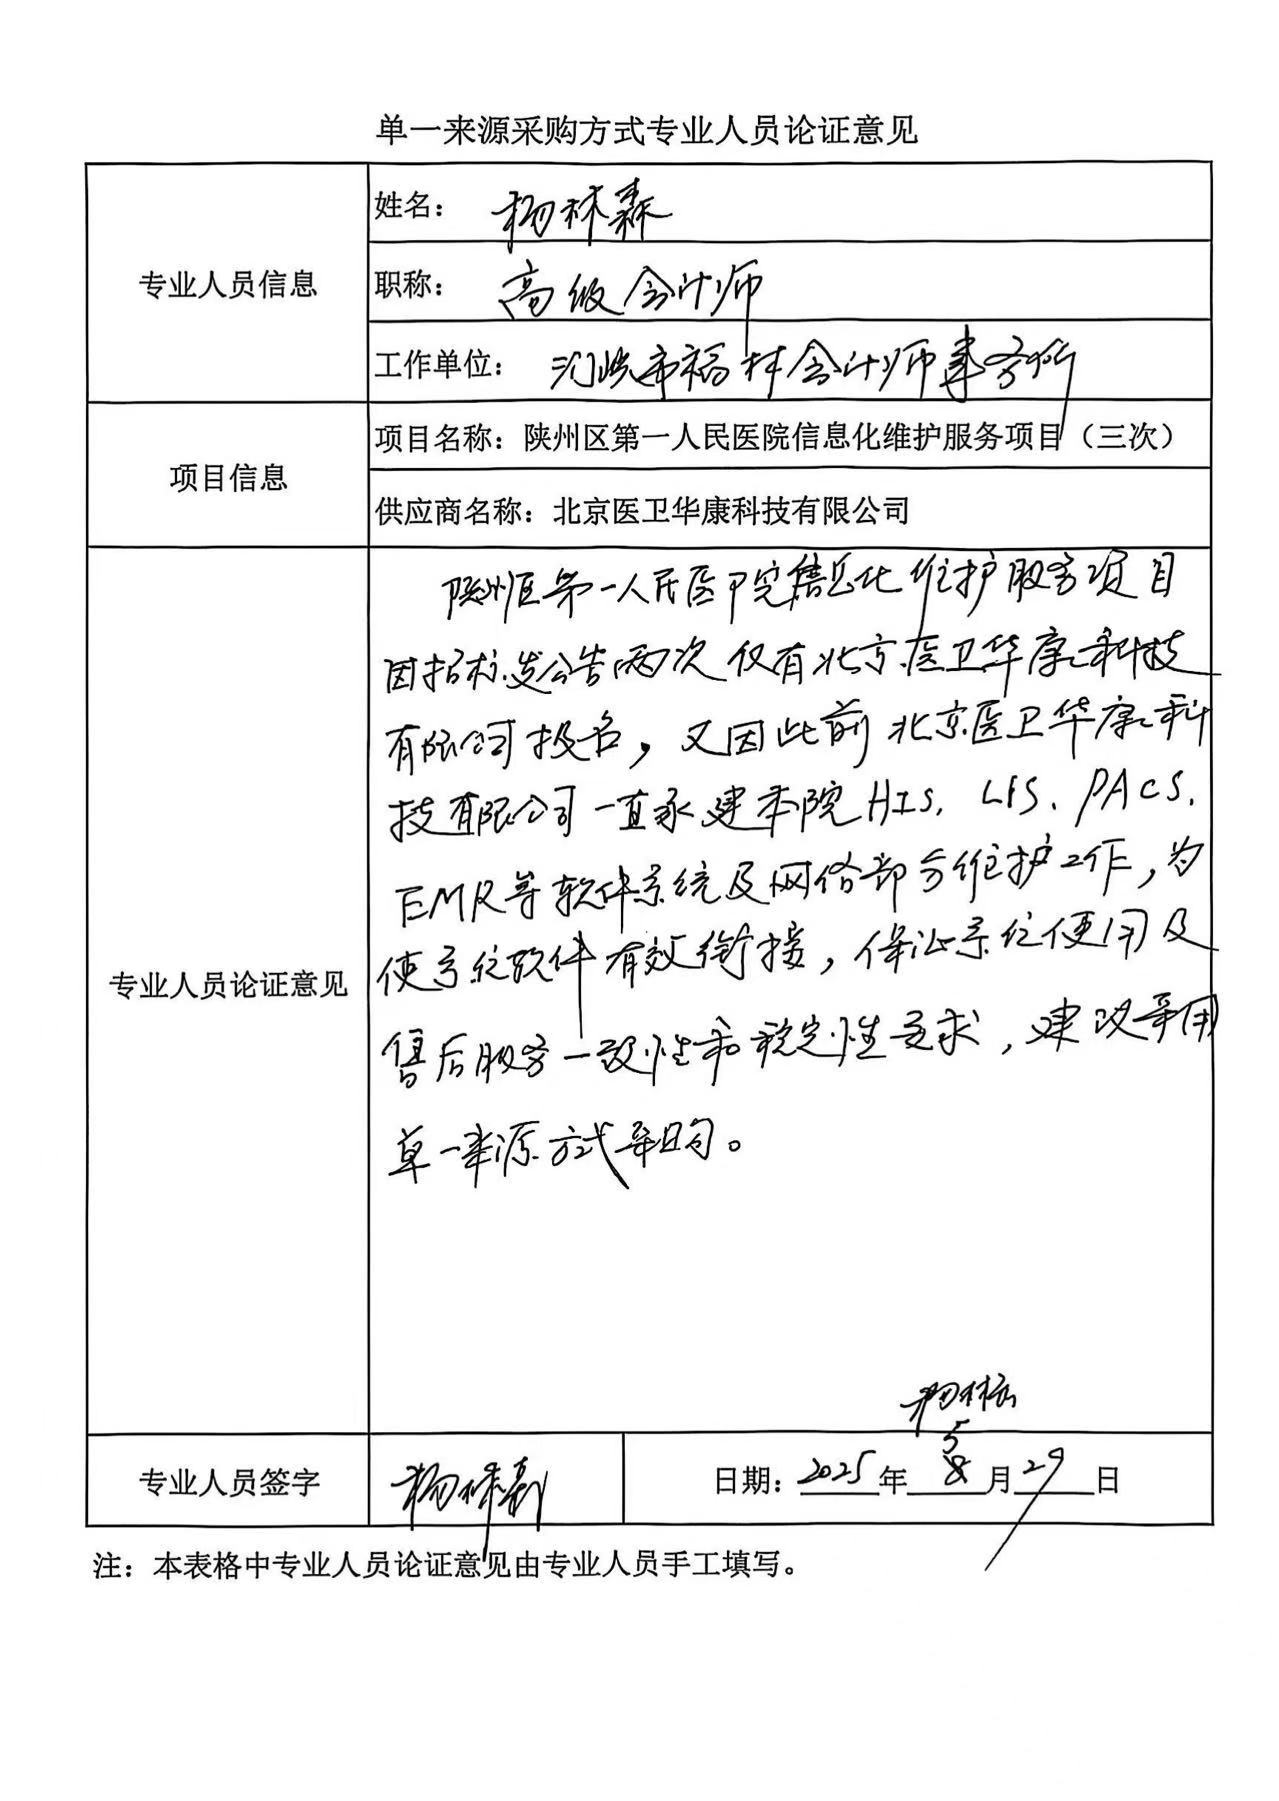 单一来源采购方式专业人员论证意见
专业人员信息
姓名： 杨林森
职称： 高级会计师
工作单位： 市福林会计师事务所
项目信息
项目名称：陕州区第一人民医院信息化维护服务项目（三次）
供应商名称：北京医卫华康科技有限公司
专业人员论证意见
陕州区第一人民医院信息化维护服务项目
因招标发公告两次仅有北京医卫华康科技
有限公司报名，又因此前北京医卫华康科
技有限公司一直承建本院HIS、LIS、PACS、
EMR等软件系统及网络部分维护工作，为
使系统软件有效衔接，保证系统使用及
售后服务一致性和稳定性要求，建议采用
单一来源方式采购。
杨林森
专业人员签字
杨林森
5
日期：2025年8月29日
注：本表格中专业人员论证意见由专业人员手工填写。